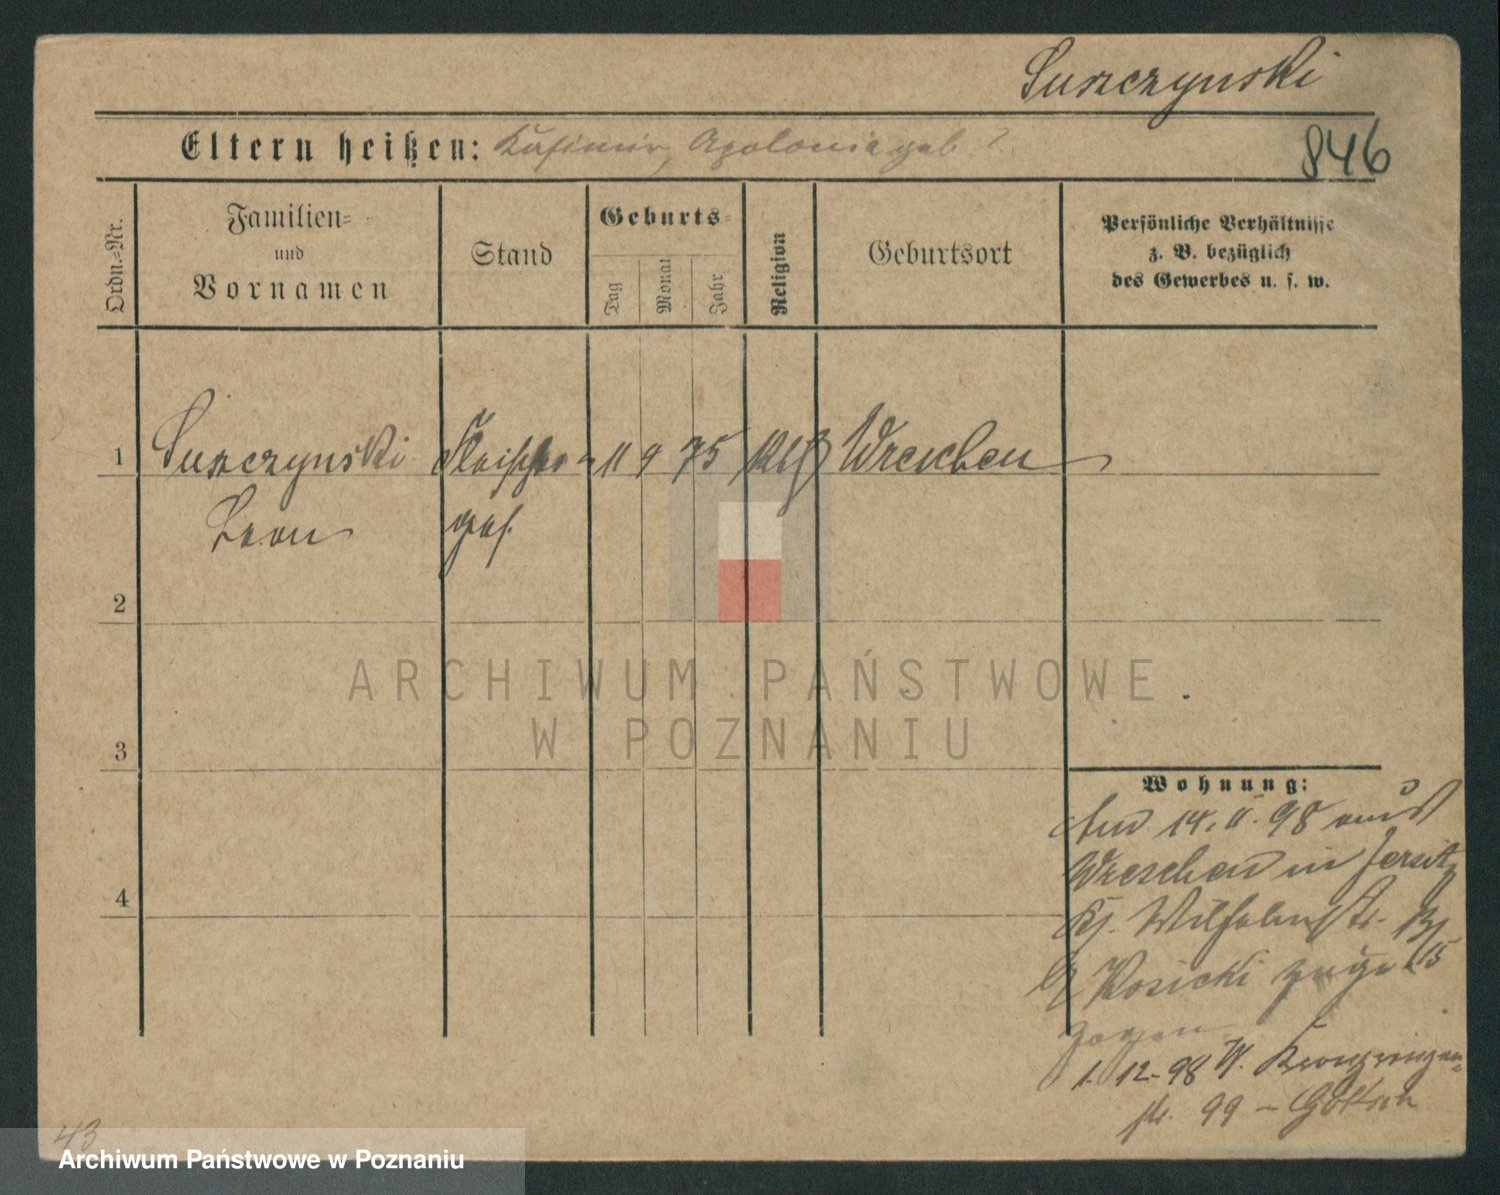 Surczynski
Eltern heißen: Kasimir, Apolonia geb ?
846
Ordn.-Nr.
Familien-
und
Vornamen
Stand
Geburts-
Tag
Monat
Jahr
Religion
Geburtsort
Persönliche Verhältnisse
z. B. bezüglich
des Gewerbes u. s. w.
1
Surczynski
Fleischer-
11 9 75
kth
Wreschen
Leon
ges.
2
ARCHIWUM PAŃSTWOWE
W POZNANIU
3
Wohnung:
14. 11. 98 aus
Wreschen in Jersitz
Wilhelmstr. 13/15
Kosicki zuge
zogen
1. 12. 98 Kronprinzen-
str. 99 -
4
43
Archiwum Państwowe w Poznaniu